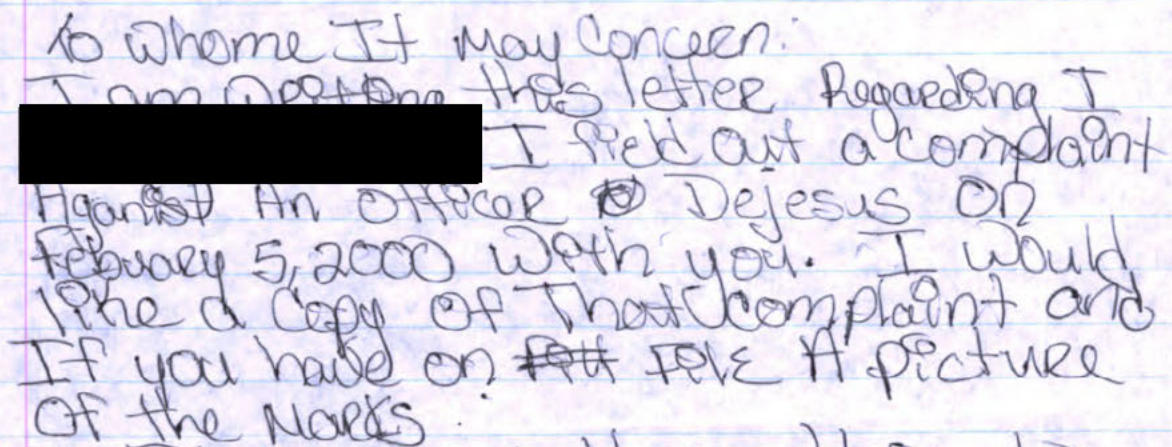 To Whome It May Concern:
I am Writting this letter Regarding I
I filed out a complaint
Aganist An officer Dejesus On
Febuary 5, 2000 With you. I Would
like a Copy Of That complaint and
If you have on File A picture
Of the Marks.